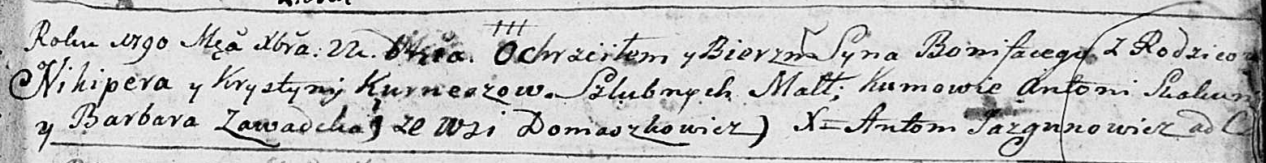 Roku 1790 Mca Xbra: 22. Dnia. Ochrzciłem y Bierzm Syna Bonifacego z Rodzicow
Nikipera y Krystyny Kurneszow. Szlubnych Małż; Kumowie Antoni Skakun
y Barbara Zawadcka, ze Wsi Domaszkowicz) X= Antoni Jazgunowicz ad C